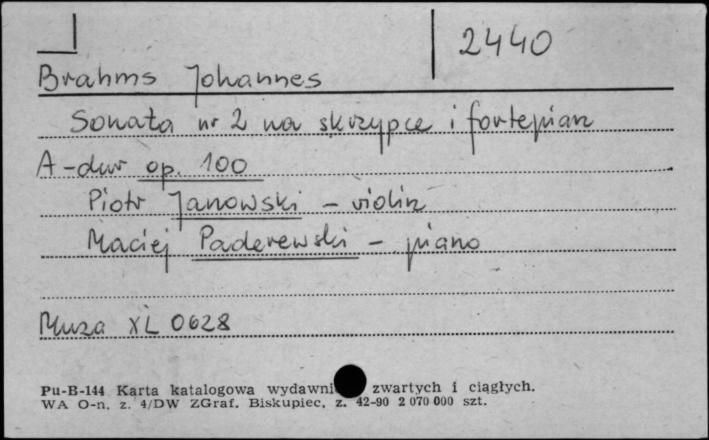 2440
Brahms Johannes
Sonata nr 2 na skrzypce i fortepian
A-dur op. 100
Piotr Janowski - violin
Maciej Paderewski - piano
Muza XL 0628
Pu-B-144 Karta katalogowa wydawni zwartych i ciągłych.
WA O-n. z. 4/DW ZGraf. Biskupiec, z. 42-90 2 070 000 szt.